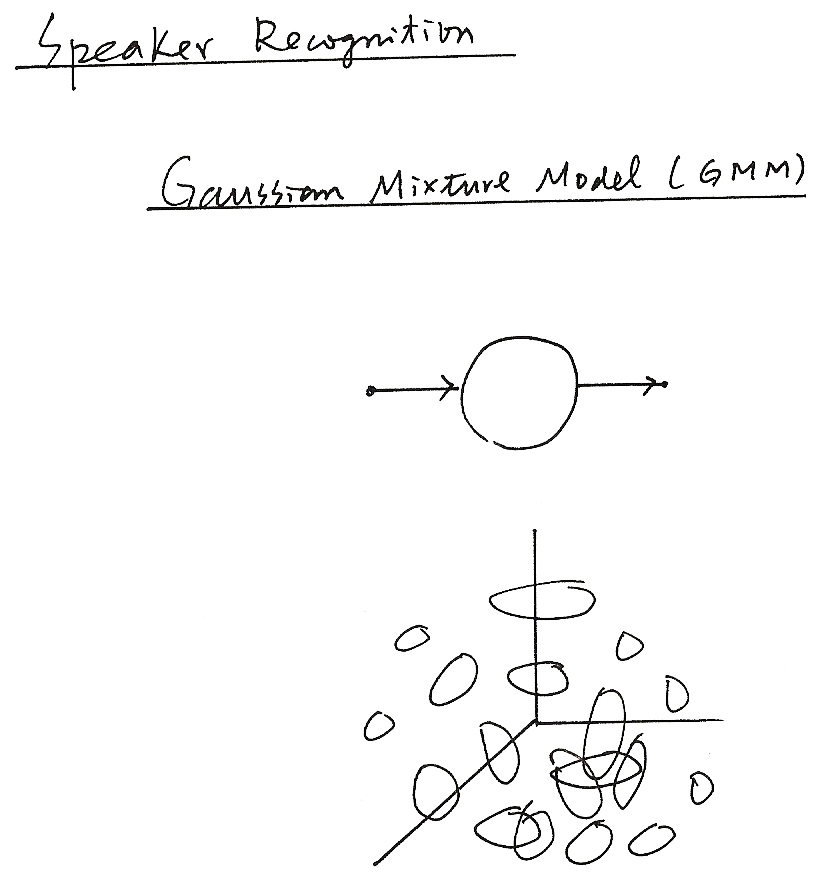 Speaker Recognition
Gaussian Mixture Model (GMM)